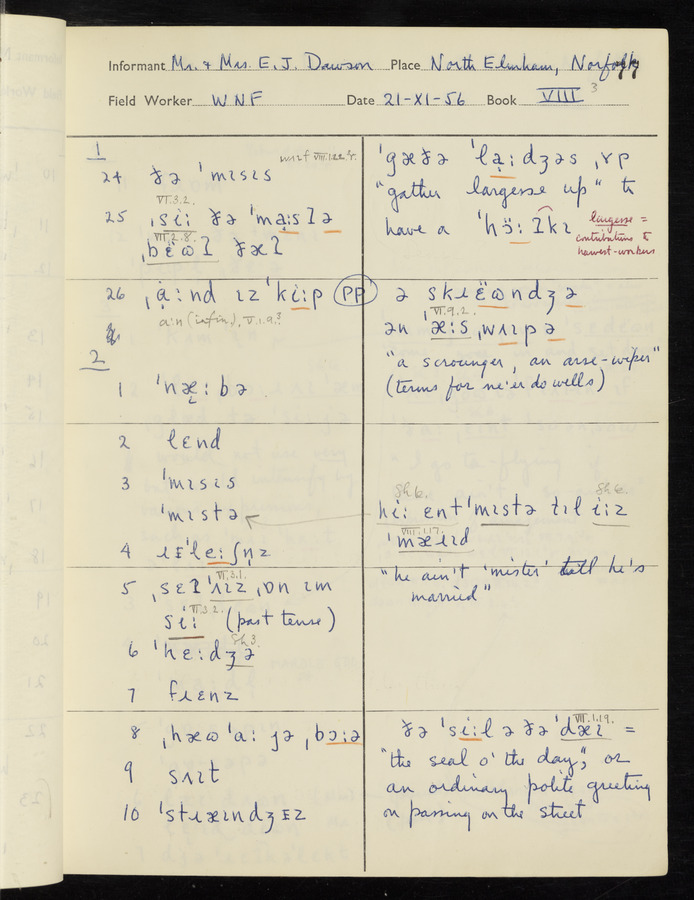 Informant Mr. & Mrs. E. J. Dawson Place North Elmham, Norfolk
Field Worker WNF Date 21-XI-56 Book VIII 3
1
24 ðə ˈmɪsɪs
VI.3.2.
25 ˌsiː ðə ˈmaːslə
VIII.2.8.
ˈgæðə ˈlaːdʒəs ˌʌp
"gather largesse up" to
have a
largesse =
contributions to
harvest-workers
26 ˌaːnd ɪz ˈkiːp PP
aːn (infin.), V.1.9.
ən æːs ˌwʌɪpə
VI.9.2.
"a scrounger, an arse-wiper"
(terms for ne'er do wells)
2
1 ˈnæːbə
2 lɛnd
3 ˈmɪsɪs
ˈmɪstə
Sh 6. Sh 6.
hiː ɛnt ˈmɪstə tɪl iːz
VIII.1.17.
ˈmæɹɪd
"he ain't 'mister' till he's
married"
4 ɹɪˈleːʃn̩z
VI.3.1.
5 ˌsɛt ˈʌɪz ˌɒn ɪm
siː VI.3.2. (past tense)
Sh 3.
6 ˈheːdʒə
7 fɹɛnz
8 ˌhæω ˈaː jə ˌbɔːə
9 sʌɪt
10 ˈstɹæɪndʒɪz
VII.1.19.
ðə ˈsiːl ə ðə ˈdæɪ =
"the seal o' the day," or
an ordinary polite greeting
on passing on the street